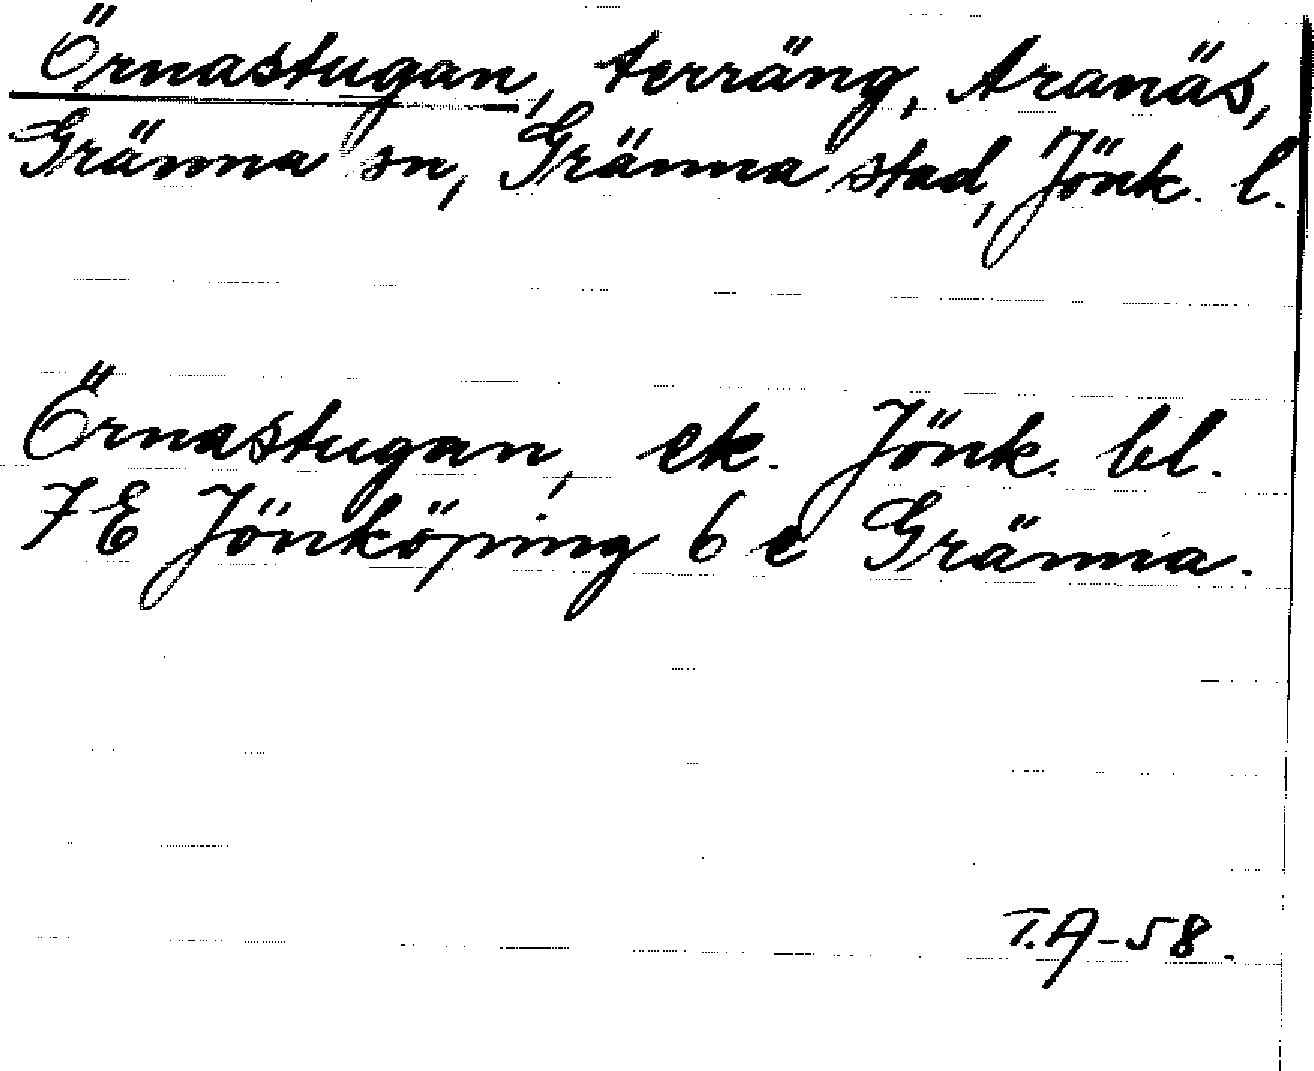 Örnastugan, terräng, Aranäs,
Gränna sn, Gränna stad, Jönk. l.
Örnastugan, ek. Jönk. bl.
7E Jönköping 6 e Gränna.
T.A-58.